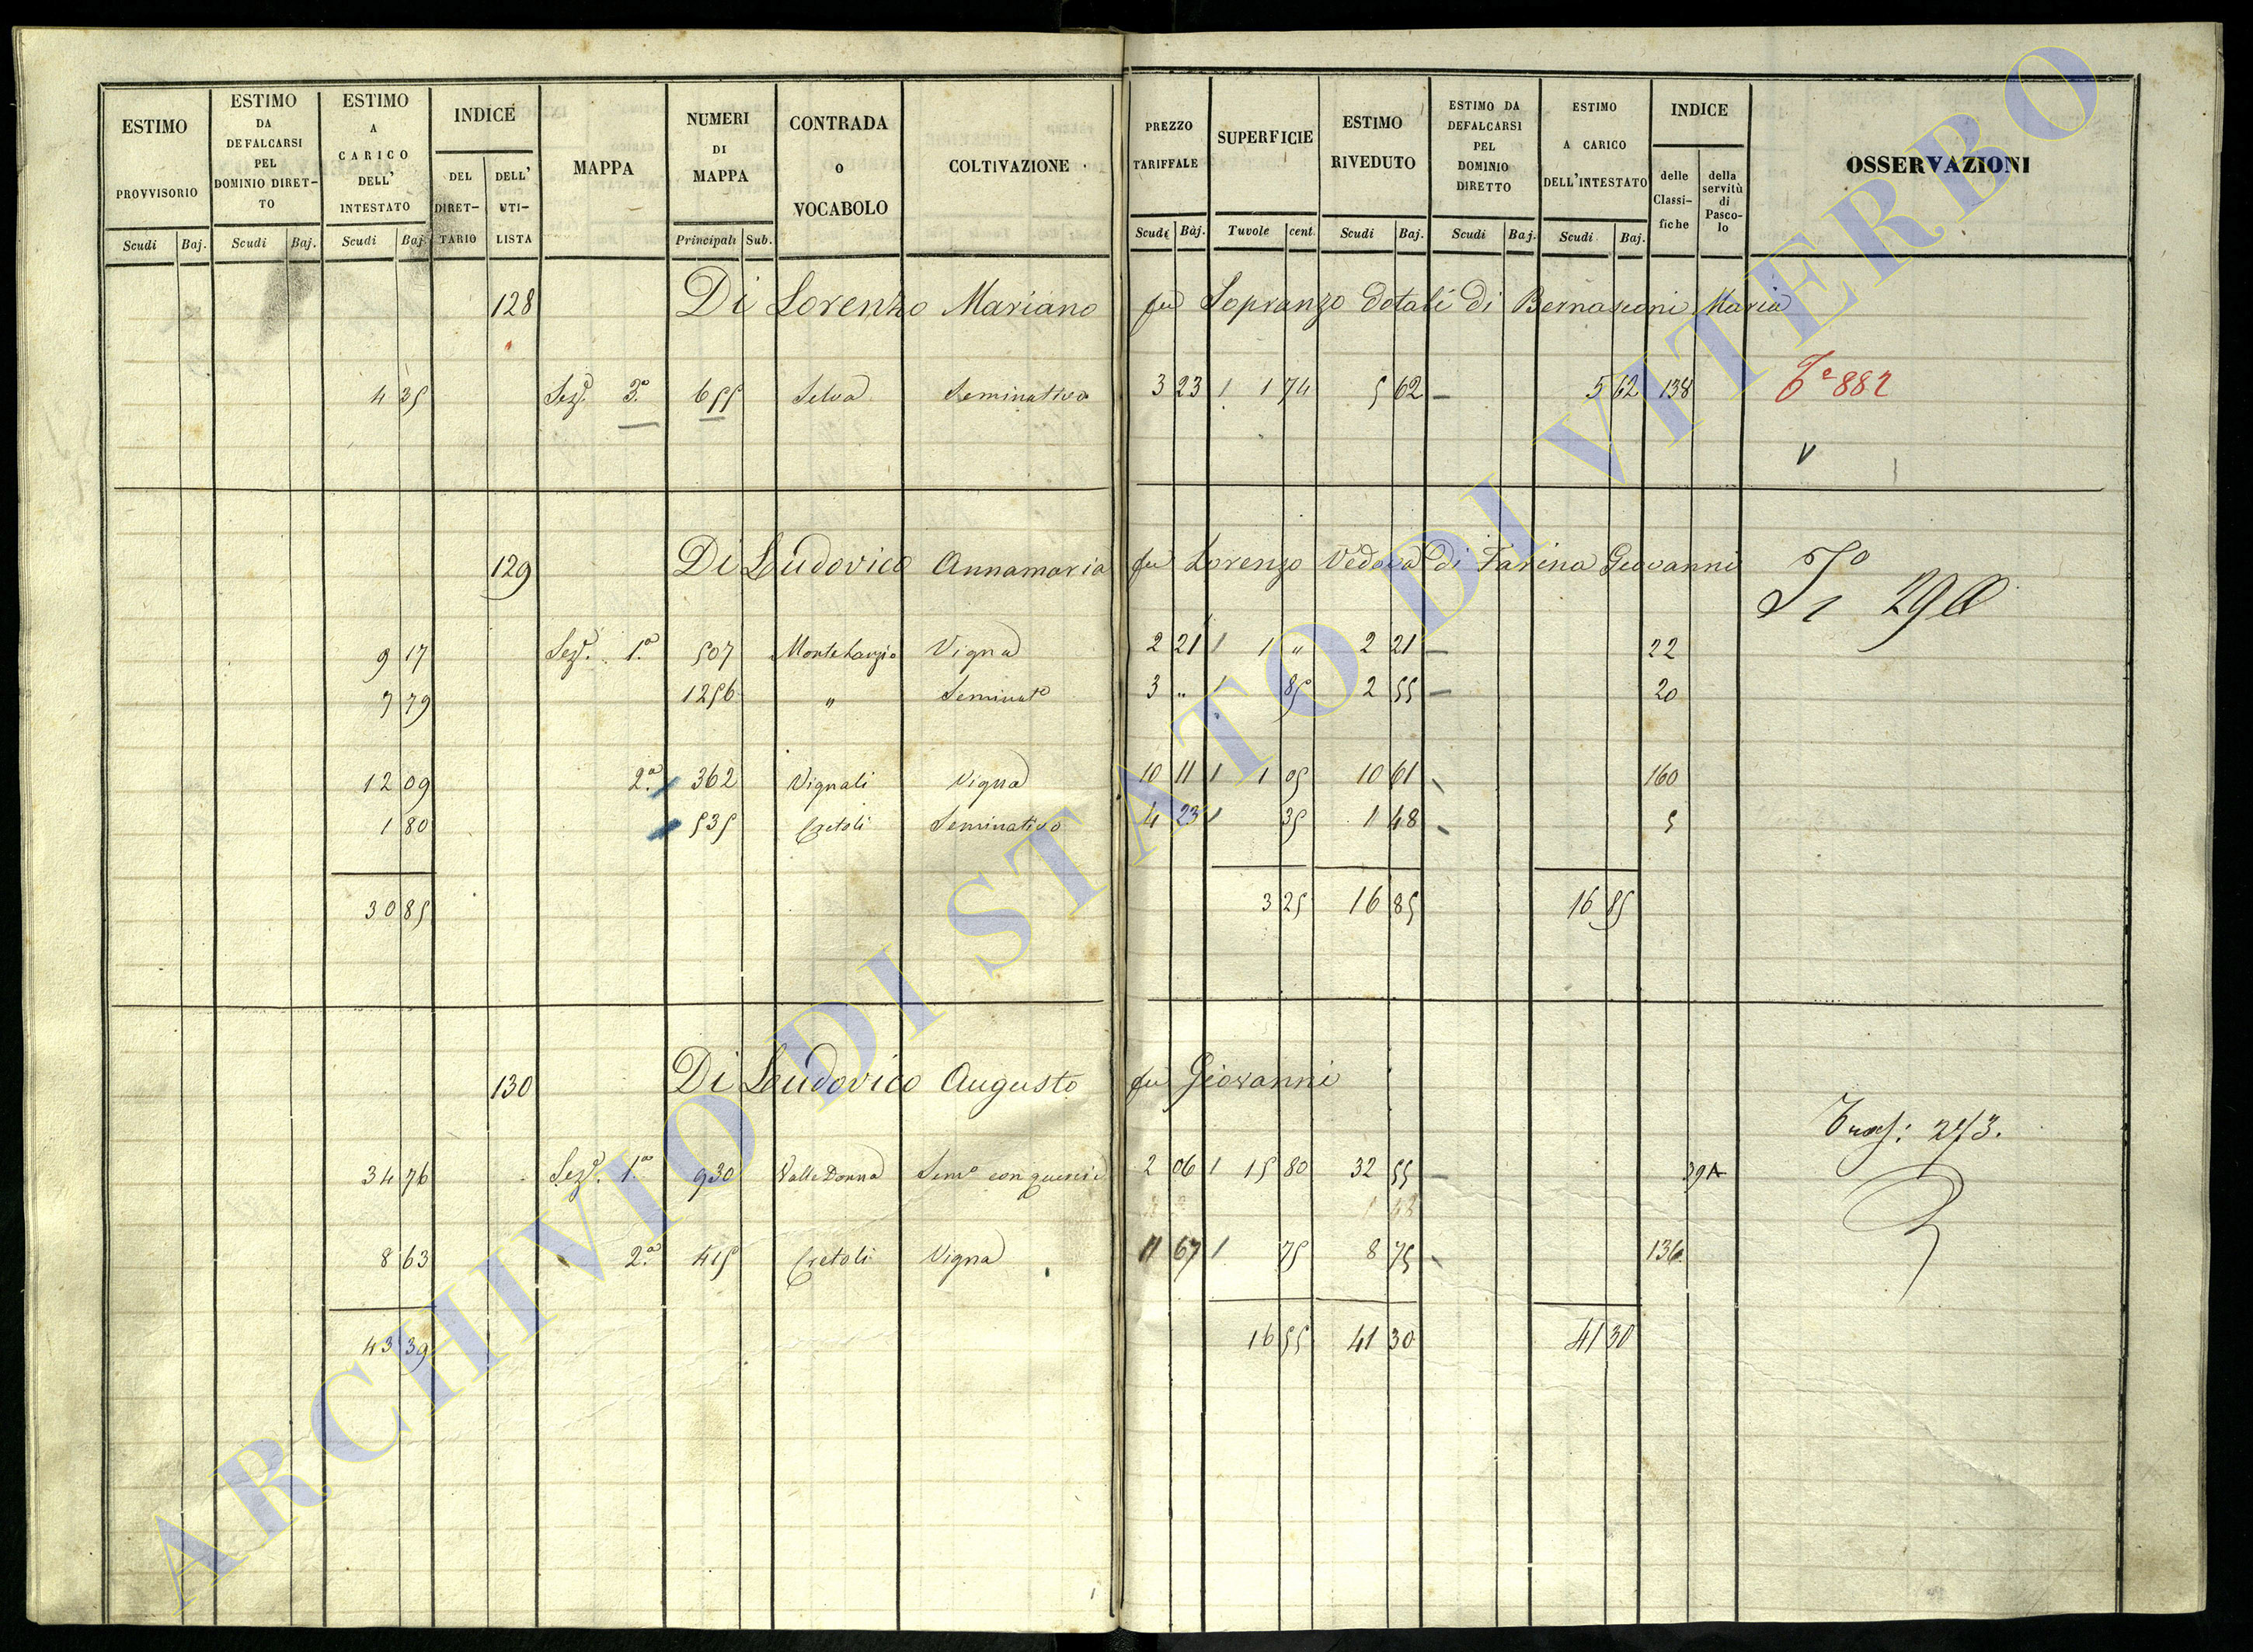 ESTIMO PROVVISORIO Scudi Baj.
ESTIMO DA DEFALCARSI PEL DOMINIO DIRET-TO Scudi Baj.
ESTIMO A CARICO DELL' INTESTATO Scudi Baj.
INDICE DEL DIRET-TARIO DELL' UTI-LISTA
MAPPA
NUMERI DI MAPPA Principali Sub.
CONTRADA O VOCABOLO
COLTIVAZIONE
PREZZO TARIFFALE Scudi Baj.
SUPERFICIE Tavole cent
ESTIMO RIVEDUTO Scudi Baj.
ESTIMO DA DEFALCARSI PEL DOMINIO DIRETTO Scudi Baj.
ESTIMO A CARICO DELL'INTESTATO Scudi Baj.
INDICE delle Classi-fiche della servitù di Pasco-lo
OSSERVAZIONI
128 Di Lorenzo Mariano fu Sopranzo dotali di Bernasconi Maria
4 35 Seze. 3a 655 Selva Seminativo 3 23 1 1 74 5 62 — 5 62 138 Te 882
V
129 Di Ludovico Annamaria fu Lorenzo Vedova di Farina Giovanni
290
9 17 Seze. 1a 507 Vigna 2 21 1 1 " 2 21 — 22
7 79 1256 " Seminato 3 " 1 85 2 55 — 20
12 09 2a 362 Vignali Vigna 10 11 1 1 05 10 61 160
1 80 535 Cretoli Seminativo 4 23 1 35 1 48 5
30 85 3 25 16 85 16 85
130 Di Ludovico Augusto fu Giovanni
Trasf: 273.
34 76 Seze. 1a 930 Valle Donna Semo con querci 2 06 1 15 80 32 55 — 39A
8 63 2a 415 Cretoli Vigna 11 67 1 75 8 75 136
43 39 16 55 41 30 41 30
ARCHIVIO DI STATO DI VITERBO